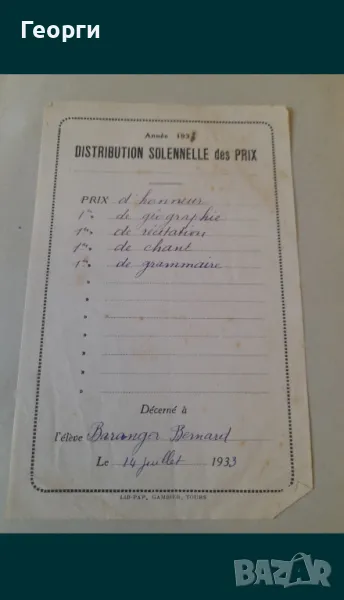 Георги
Année 1933
DISTRIBUTION SOLENNELLE des PRIX
PRIX d'honneur
1er de géographie
1er de récitation
1er de chant
1er de grammaire
"
"
"
"
"
Décerné à
l'élève Baranger Bernard
Le 14 juillet 1933
LIB-PAP, GAMBIER, TOURS
BAZAR